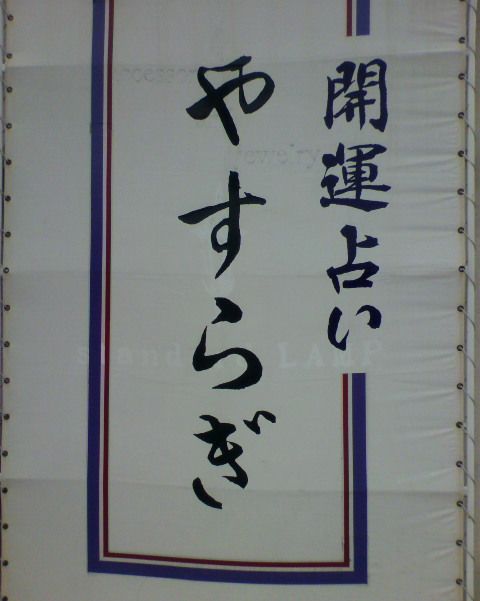 開運占い
やすらぎ
jewelry
LAMP